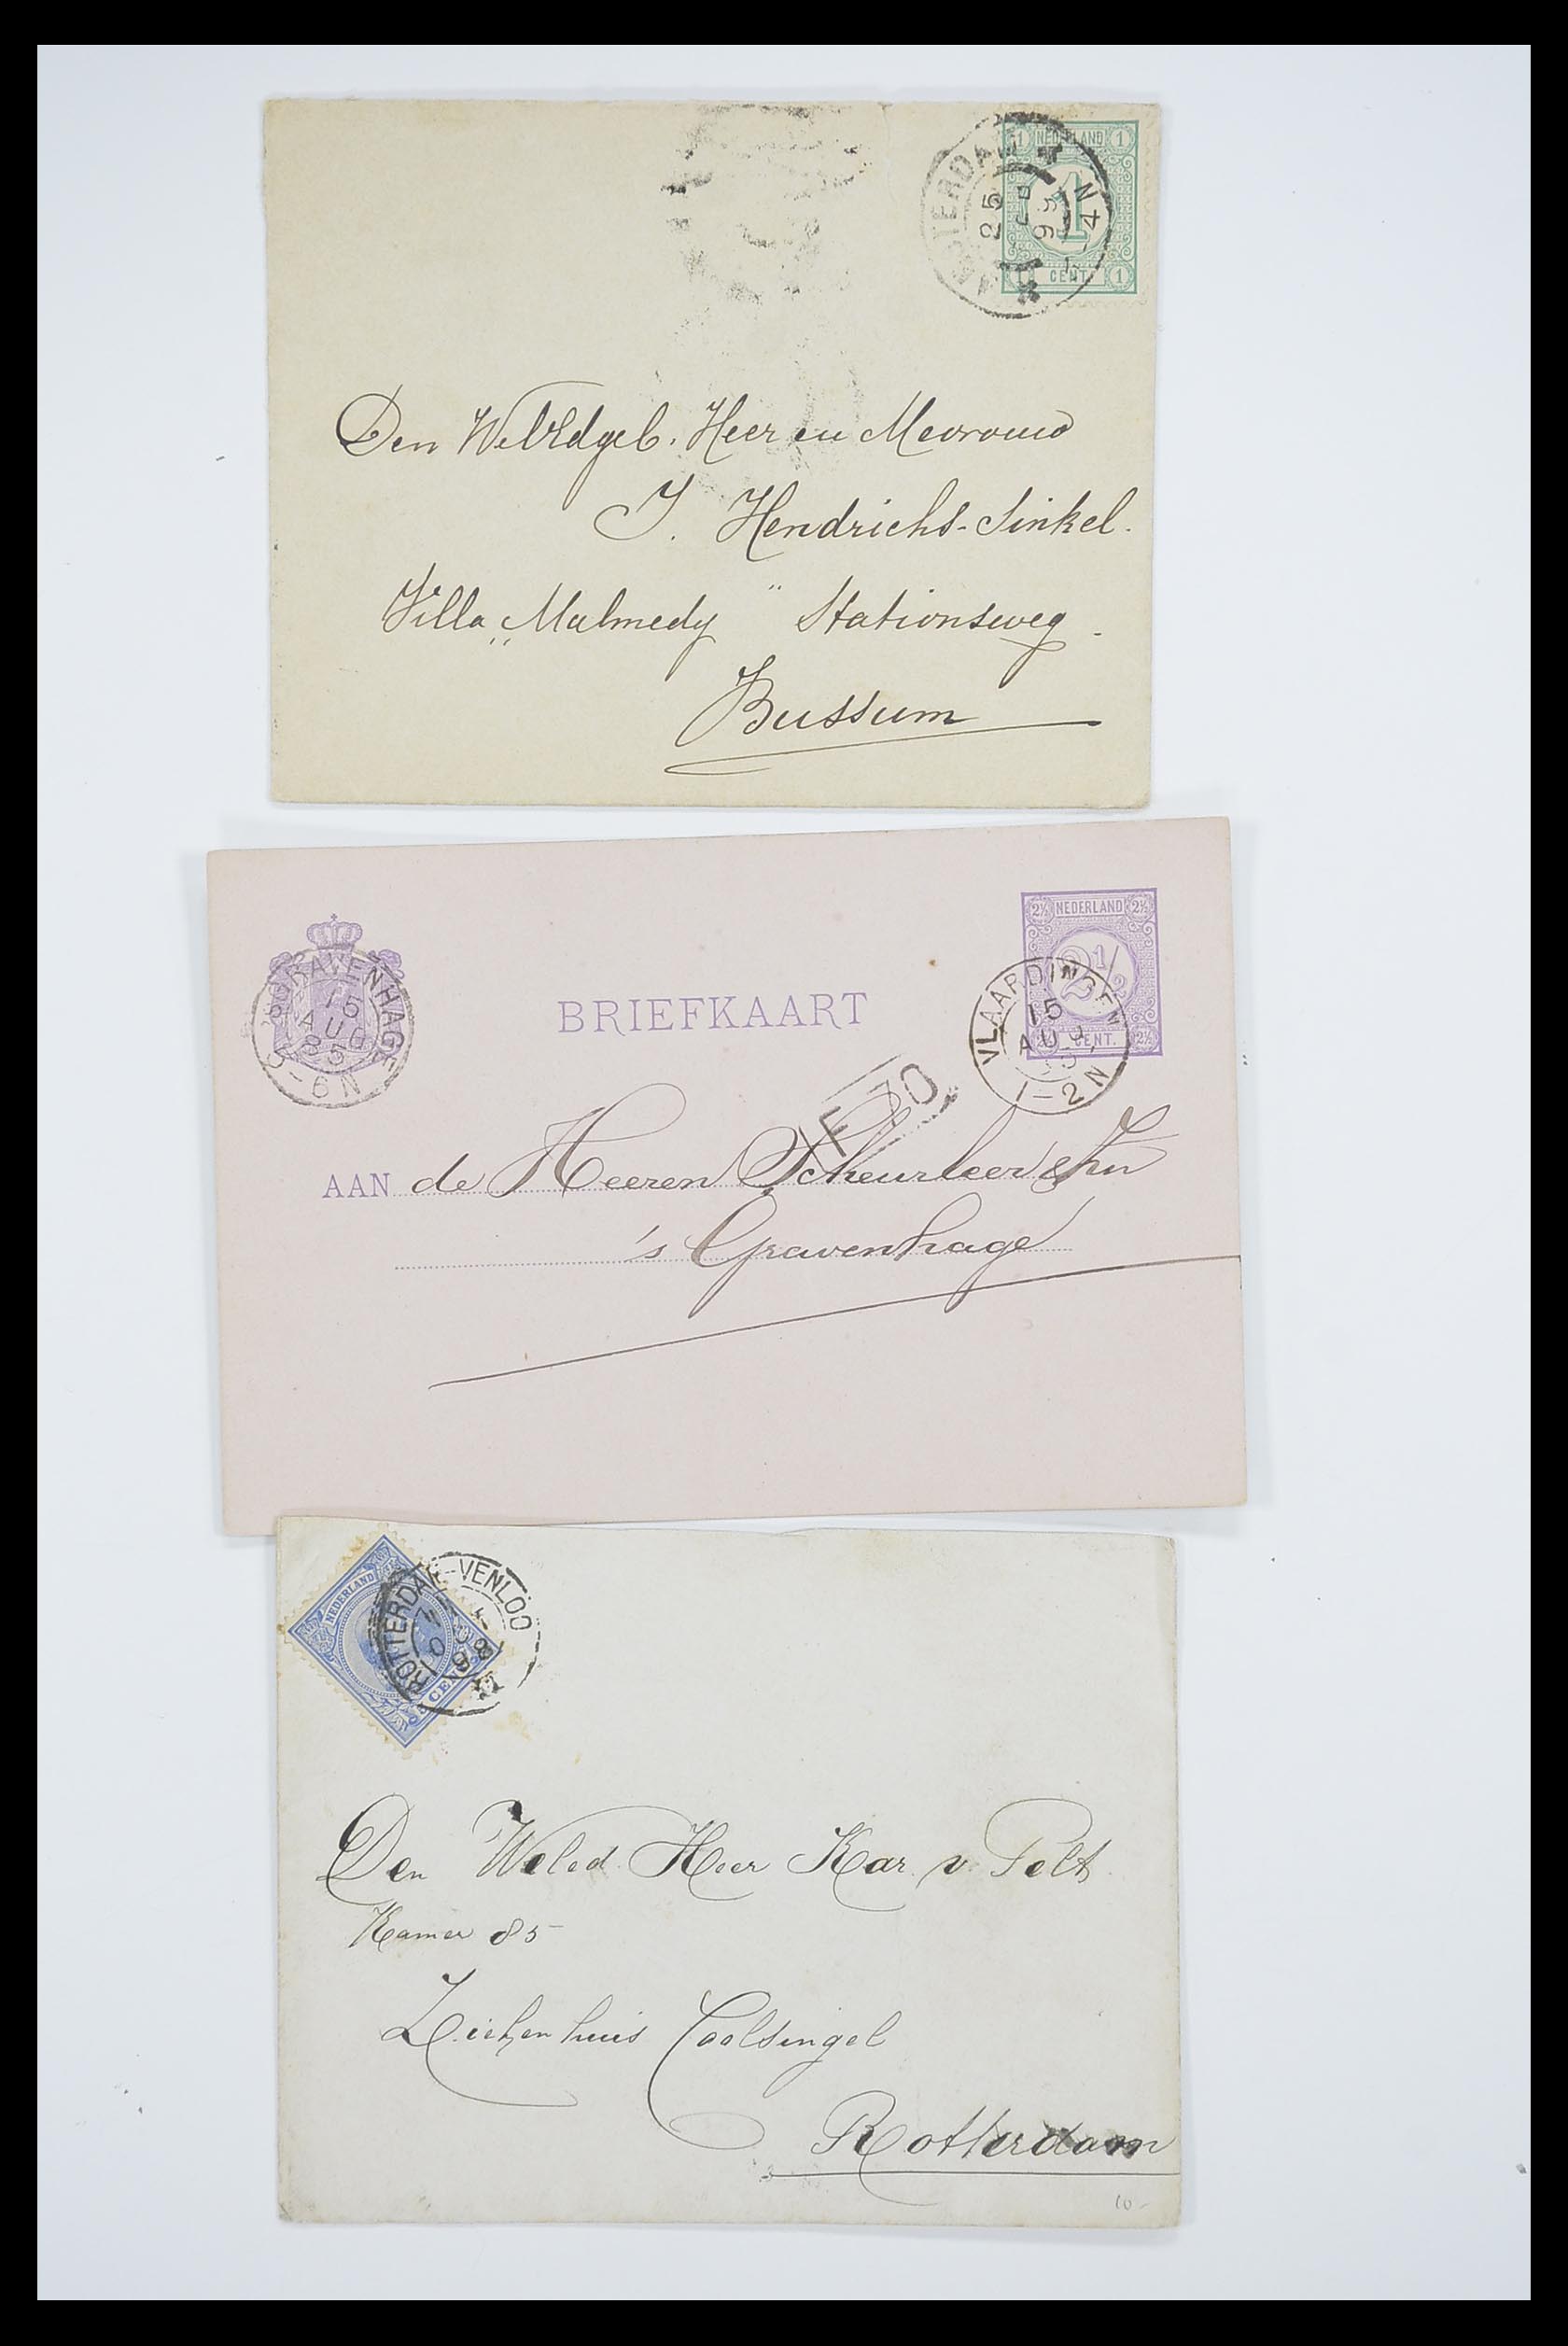 1 NEDERLAND 1
1
1 CENT. 1
25
1-4 N
Den WelEdgeb. Heer en Mevrouw
J. Hendrichs-Sinkel.
Villa „Malmedy" Stationsweg.
Bussum
2½ NEDERLAND 2½
2½
CENT. 2½
'S GRAVENHAGE
15
AUG
85
5-6N
BRIEFKAART
VLAARDINGEN
15
AUG
1-2N
AAN de Heeren Scheurleer & Zn
's Gravenhage
NEDERLAND
5 CENT
ROTTERDAM-VENLOO
Den Weled Heer Kar v. Pelt
Kamer 85
Ziekenhuis Coolsingel
Rotterdam
10-